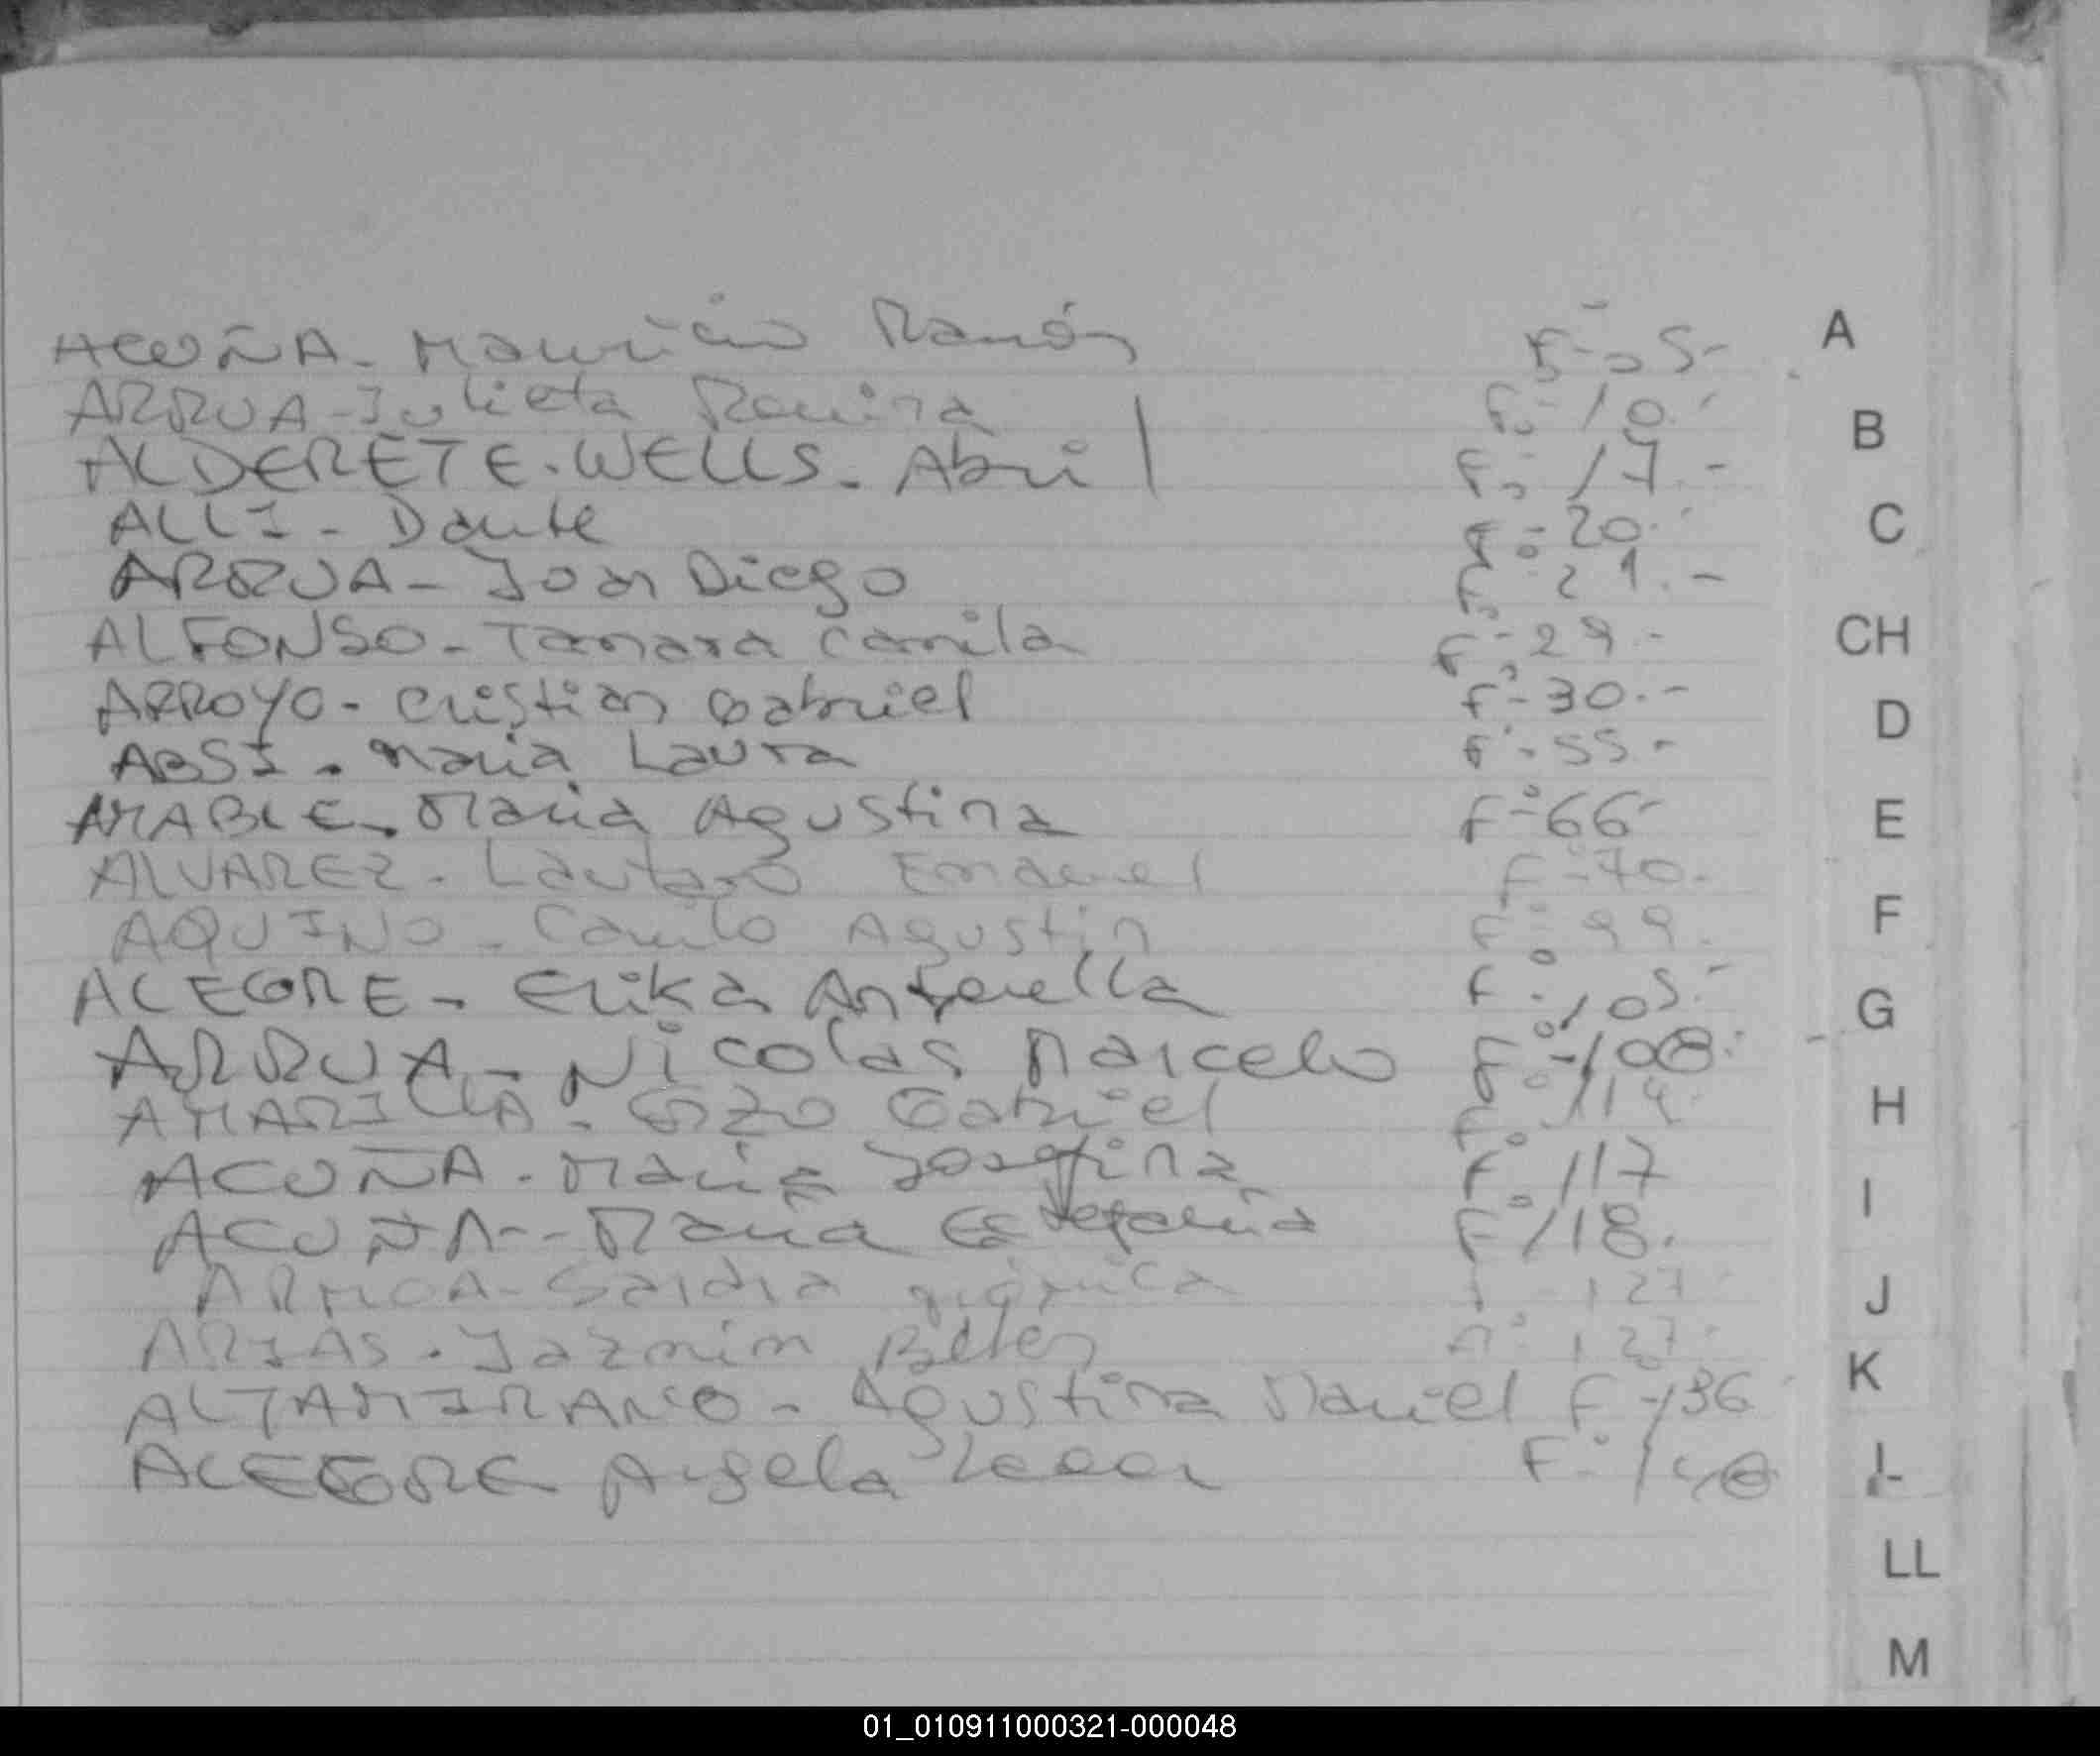 ACUÑA - Mauricio Ramón Fº- 05- A
ARRUA - Julieta Romina Fº- 10.-
B
ALDERETE - WELLS - Abril Fº- 17.-
ALLI - Dante Fº- 20.-
C
ARRUA - Joan Diego Fº- 21.-
ALFONSO - Tamara Camila Fº- 29.-
CH
ARROYO - Cristian Gabriel Fº- 30.-
D
ABSI - Maria Laura Fº- 55.-
AMABLE - Maria Agustina Fº- 66-
E
ALVAREZ - Lautaro Emanuel Fº- 70.-
AQUINO - Camilo Agustin Fº- 99.
F
ALEGRE - Erika Antonella Fº- 105.-
G
ARRUA - Nicolas Marcelo Fº- 108.-
AMARILLA - Enzo Gabriel Fº- 114.
H
ACUÑA - Maria Josefina Fº 117
ACUÑA - Maria Estefania Fº 118.
I
ARMOA - 127.-
J
ARIAS - Jazmin Belen 127.-
ALTAMIRANO - Agustina Mariel Fº- 136
K
ALEGRE Angela Fº- 148
L
LL
M
01_010911000321-000048